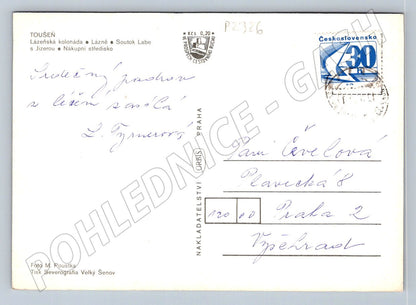 TOUŠEŇ
Lázeňská kolonáda • Lázně • Soutok Labe
s Jizerou • Nákupní středisko
Kčs 0,30
PZ326
Československo
30
Srdečný pozdrav
z léčení zasílá
Z. Tymerová
Paní Čevelová
Plavecká 8
120 00 Praha 2
Vyšehrad
NAKLADATELSTVÍ ORBIS PRAHA
Foto M. Pouska
Tisk Severografia Velký Šenov
POHLEDNICE - GETH